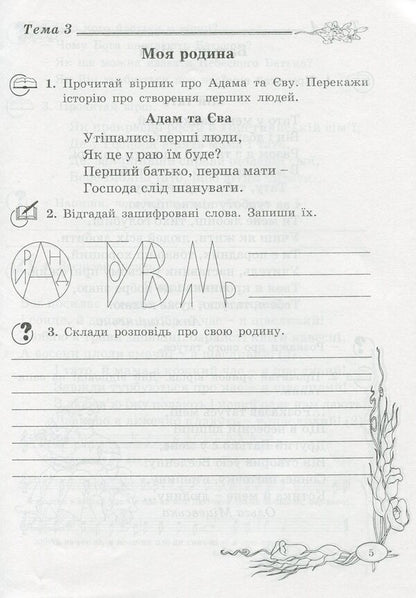 Тема 3
Моя родина
1. Прочитай віршик про Адама та Єву. Перекажи
історію про створення перших людей.
Адам та Єва
Утішались перші люди,
Як це у раю їм буде?
Перший батько, перша мати –
Господа слід шанувати.
2. Відгадай зашифровані слова. Запиши їх.
3. Склади розповідь про свою родину.
5